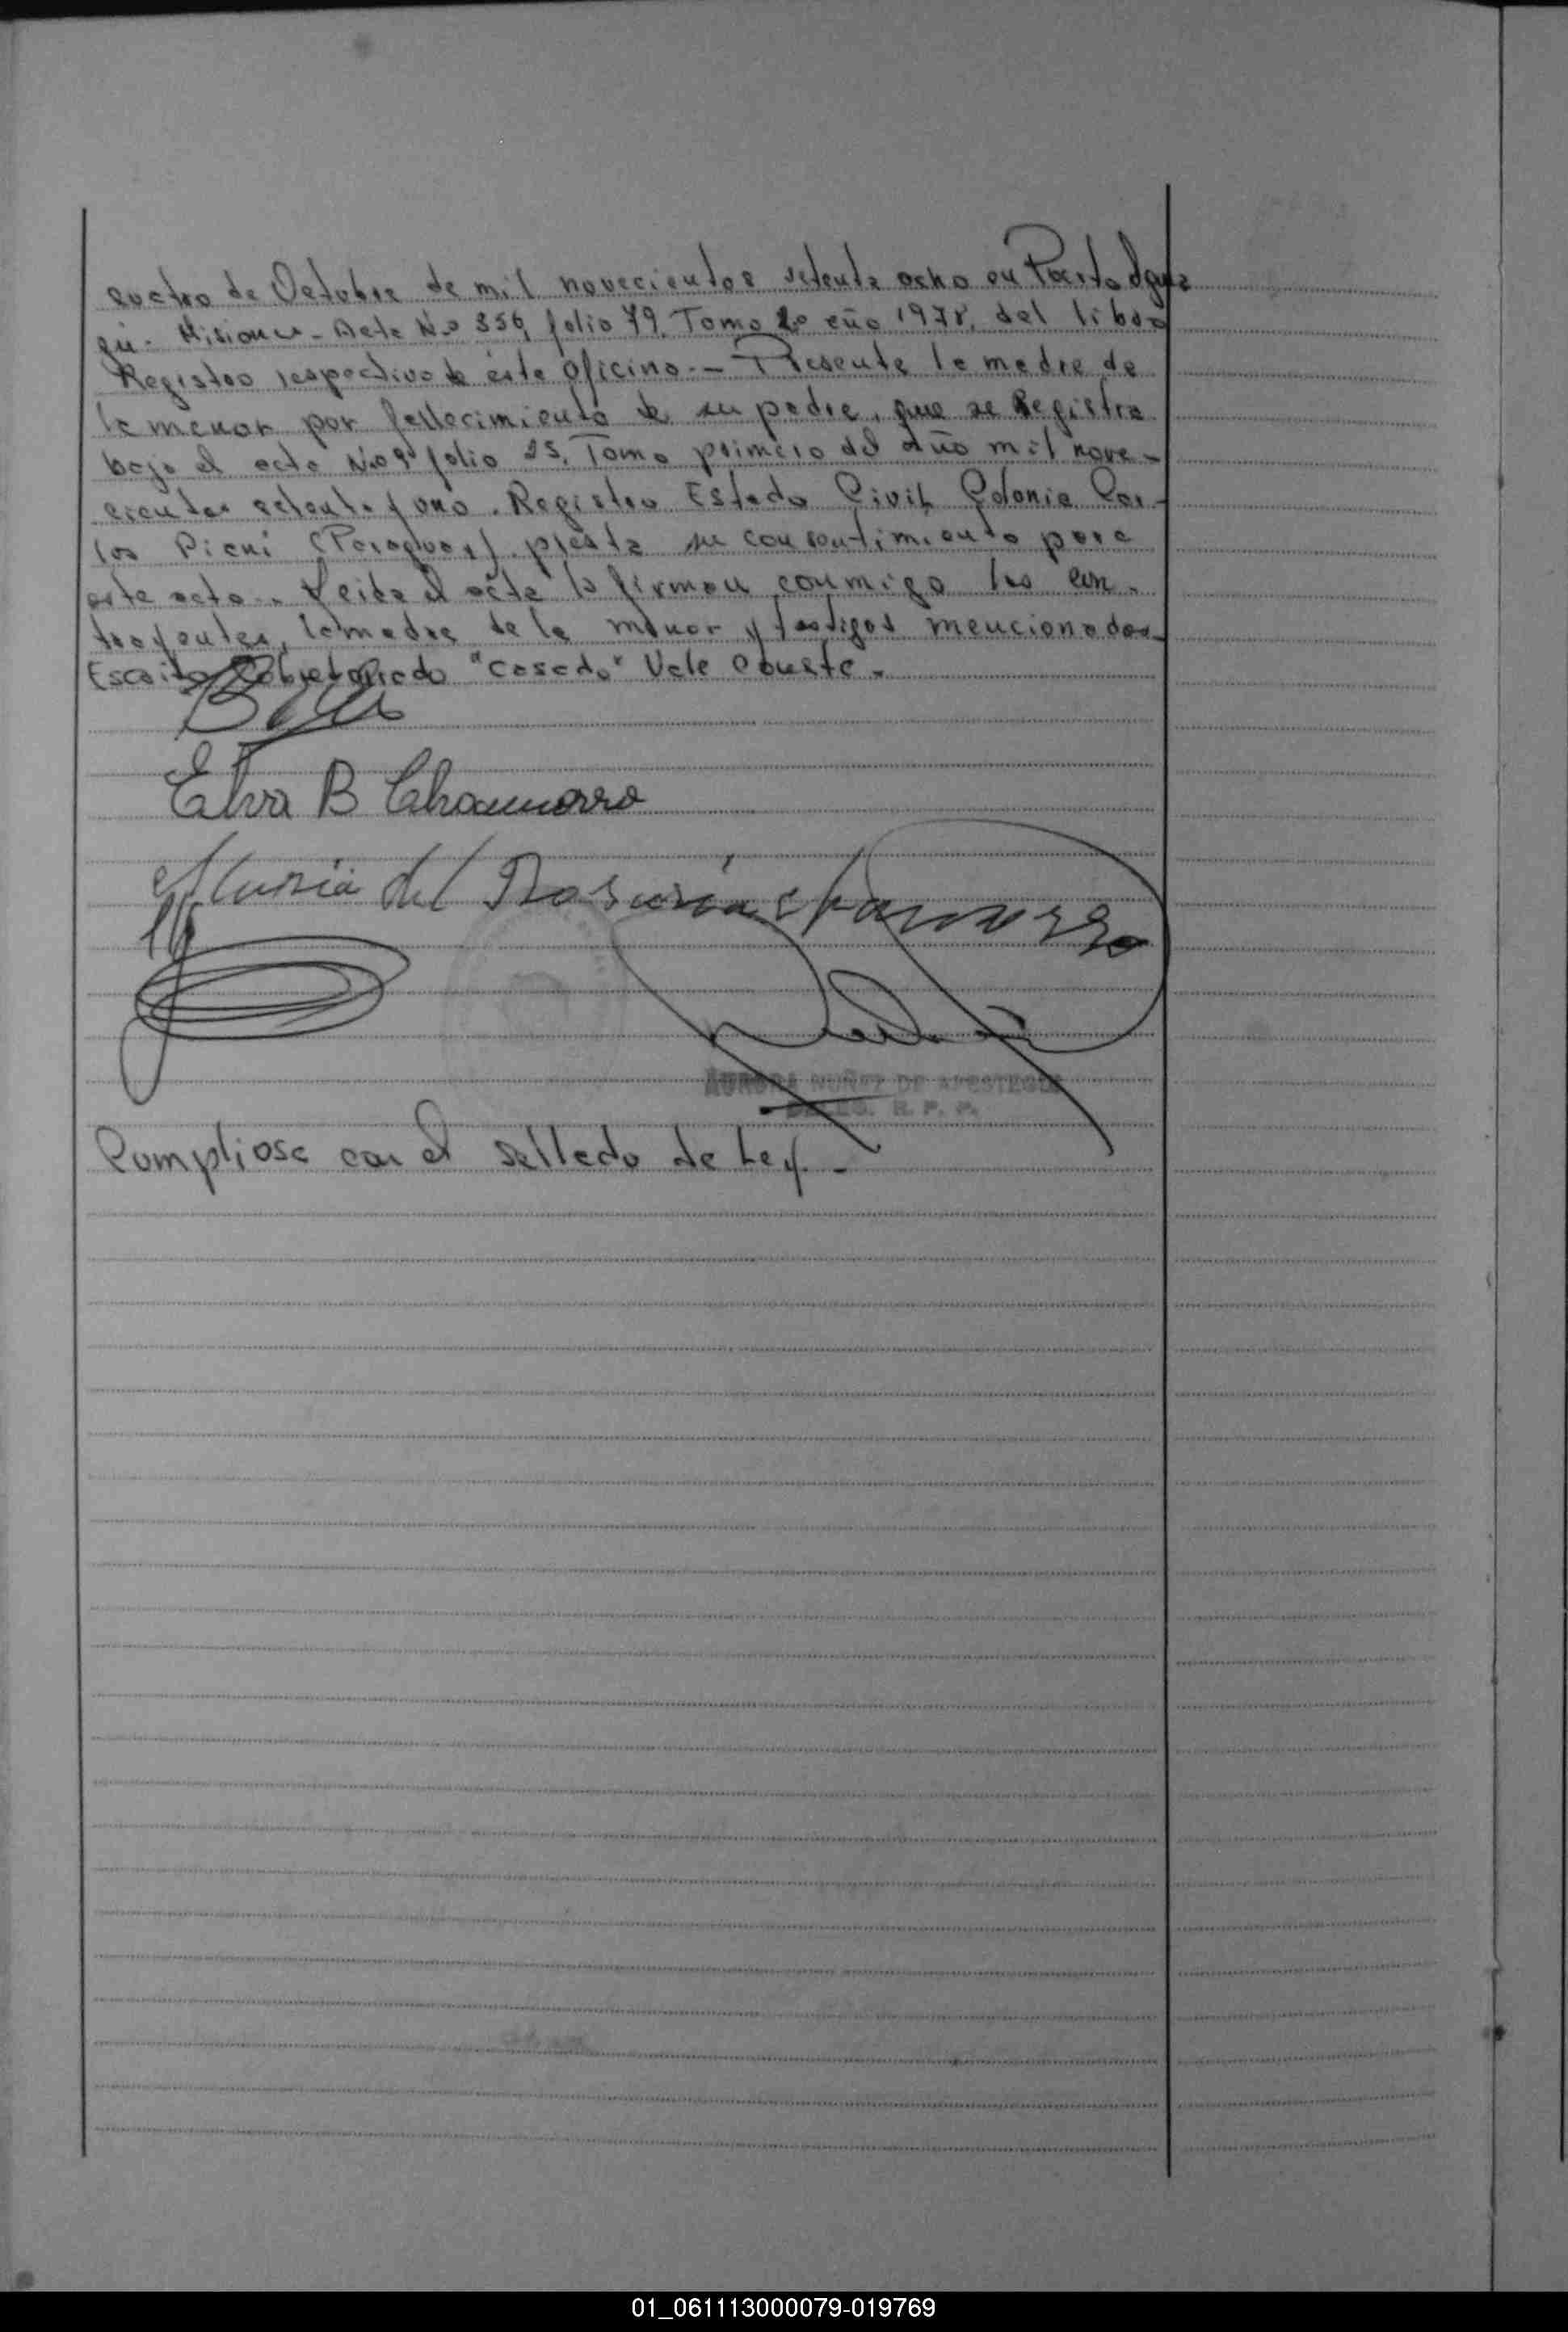 cuatro de Octubre de mil novecientos setenta ocho en Puerto Igua
zú. Misiones - Acta No 356, folio 79. Tomo 2o año 1978, del libro
Registro respectivo de ésta oficina.- Presente la madre de
la menor por fallecimiento de su padre, que se Registra
bajo el acta No 9 folio 25. Tomo primero del año mil nove-
cientos setenta y uno. Registro Estado Civil Colonia Car-
los Picni (Paraguay) presta su consentimiento para
este acto.. Leida el acta la firman conmigo los con-
trayentes, la madre de la menor y testigos mencionados
Escrito Sobreborrado "casado" Vale Conste.-
Elva B Chamorro
Maria del Rosario Chamorro
AURORA NUÑEZ DE APESTEGUI
DELEG. R. P. P.
Cumpliose con el sellado de Ley.-
01_061113000079-019769